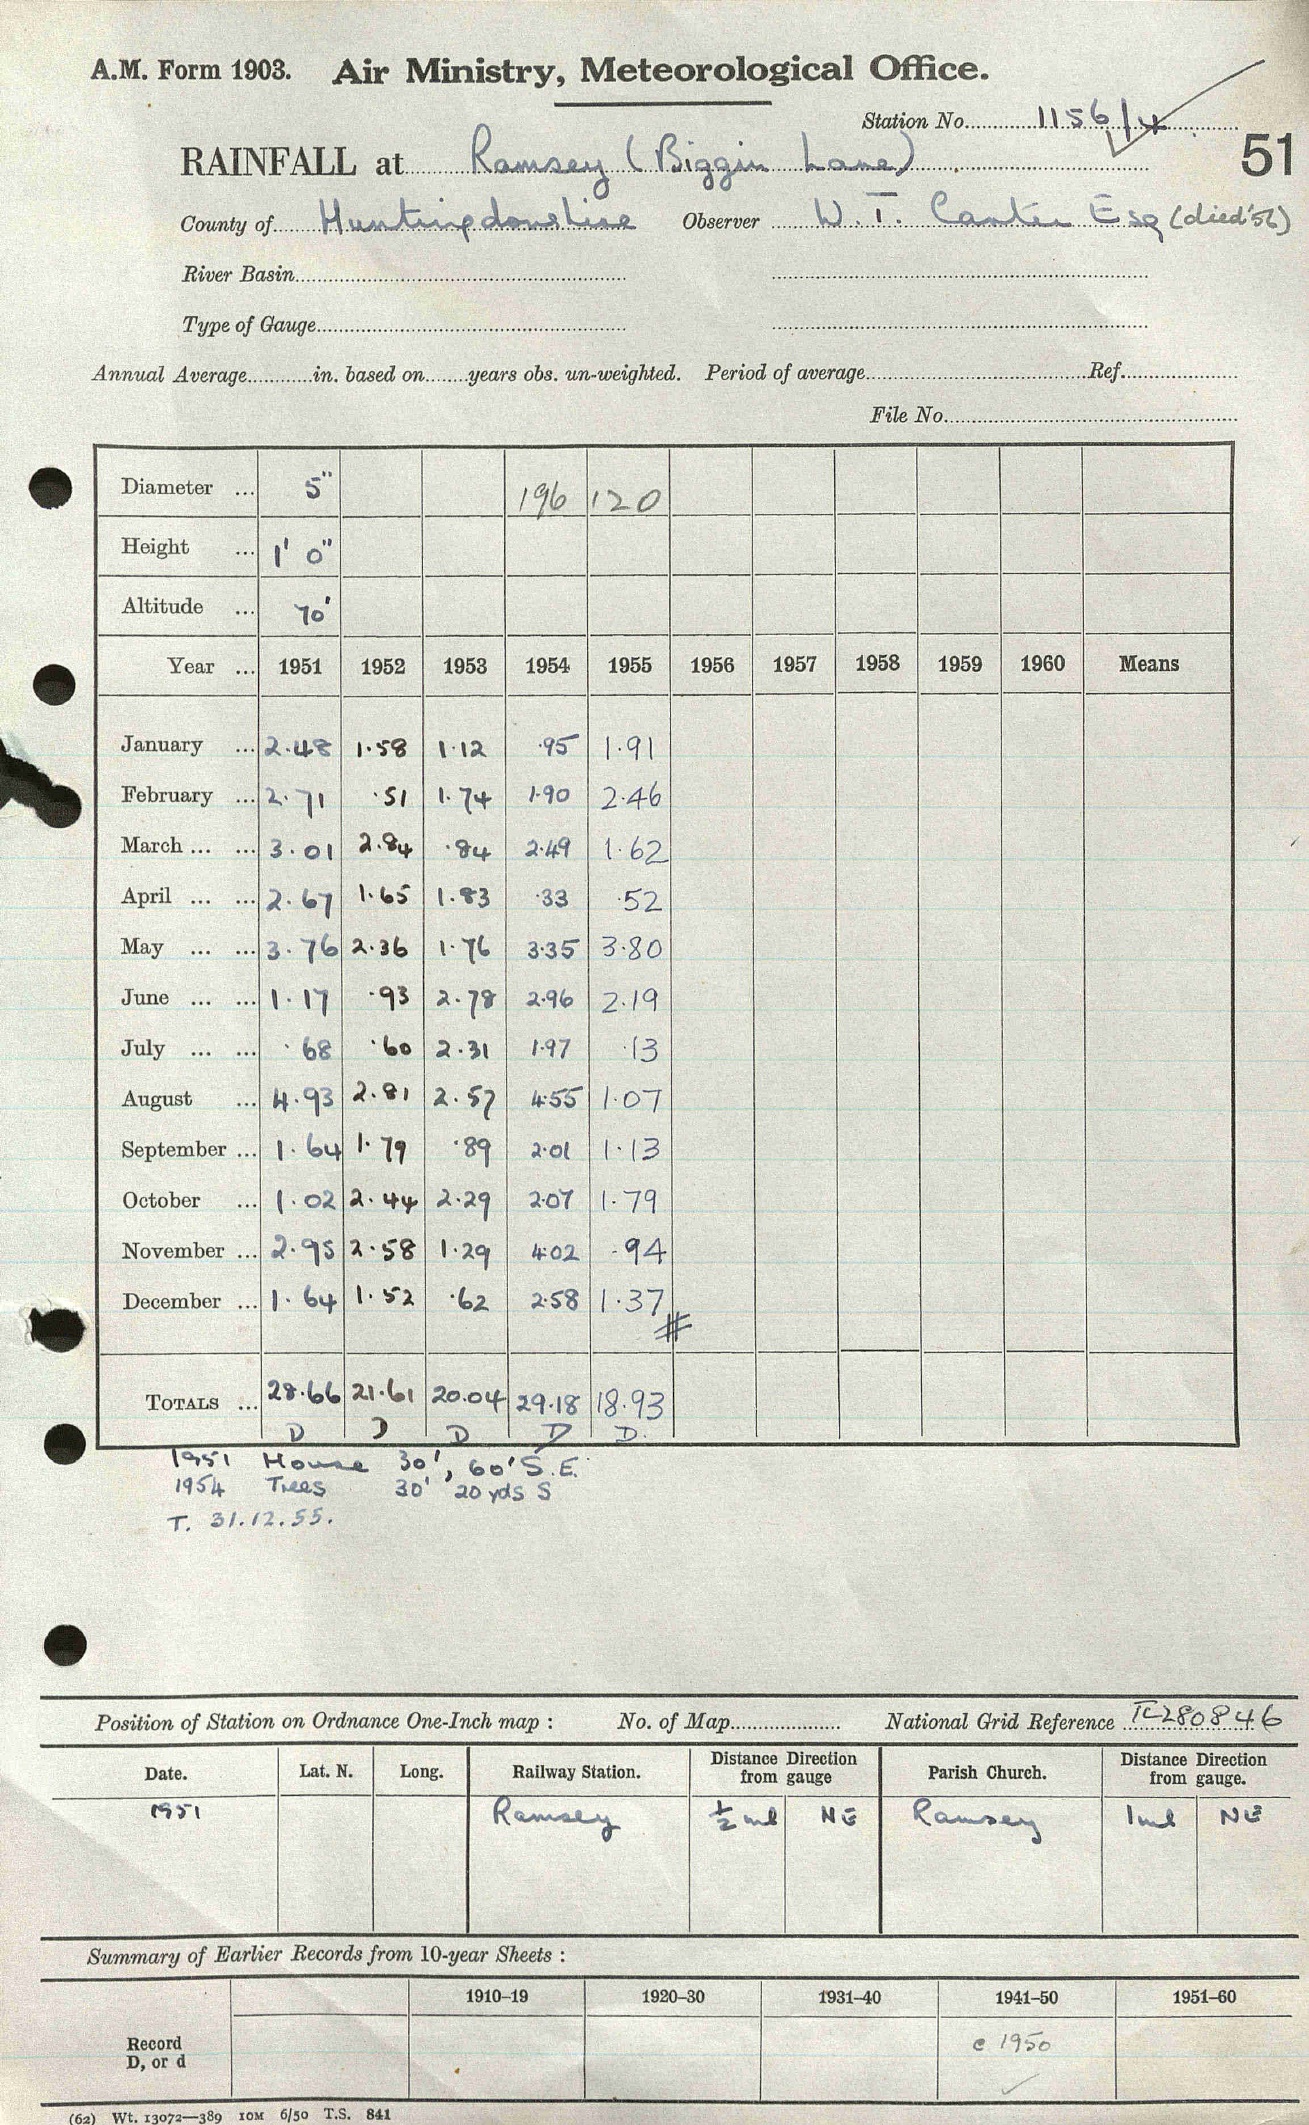 A.M. Form 1903. Air Ministry, Meteorological Office.
Station No. 1156/4
51
RAINFALL at Ramsey (Biggin Lane)
County of Huntingdonshire Observer W. T. Carter Esq (died '56)
River Basin
Type of Gauge
Annual Average in. based on years obs. un-weighted. Period of average Ref.
File No.
Diameter ... 5" 196 120
Height ... 1' 0"
Altitude ... 70'
Year ... 1951 1952 1953 1954 1955 1956 1957 1958 1959 1960 Means
January ... 2.48 1.58 1.12 .95 1.91
February ... 2.71 .51 1.74 1.90 2.46
March ... ... 3.01 2.84 .84 2.49 1.62
April ... ... 2.67 1.65 1.83 .33 .52
May ... ... 3.76 2.36 1.76 3.35 3.80
June ... ... 1.17 .93 2.78 2.96 2.19
July ... ... .68 .60 2.31 1.97 .13
August ... 4.93 2.81 2.57 4.55 1.07
September ... 1.64 1.79 .89 2.01 1.13
October ... 1.02 2.44 2.29 2.07 1.79
November ... 2.95 2.58 1.29 4.02 .94
December ... 1.64 1.52 .62 2.58 1.37
#
TOTALS ... 28.66 21.61 20.04 29.18 18.93
D D D D D.
1951 House 30', 60' S.E.
1954 Trees 30' 20 yds S
T. 31.12.55.
Position of Station on Ordnance One-Inch map : No. of Map National Grid Reference TL280846
Date. Lat. N. Long. Railway Station. Distance Direction from gauge Parish Church. Distance Direction from gauge.
1951 Ramsey ½ ml NE Ramsey 1ml NE
Summary of Earlier Records from 10-year Sheets :
1910–19 1920–30 1931–40 1941–50 1951–60
Record
D, or d
c 1950
(62) Wt. 13072—389 10M 6/50 T.S. 841